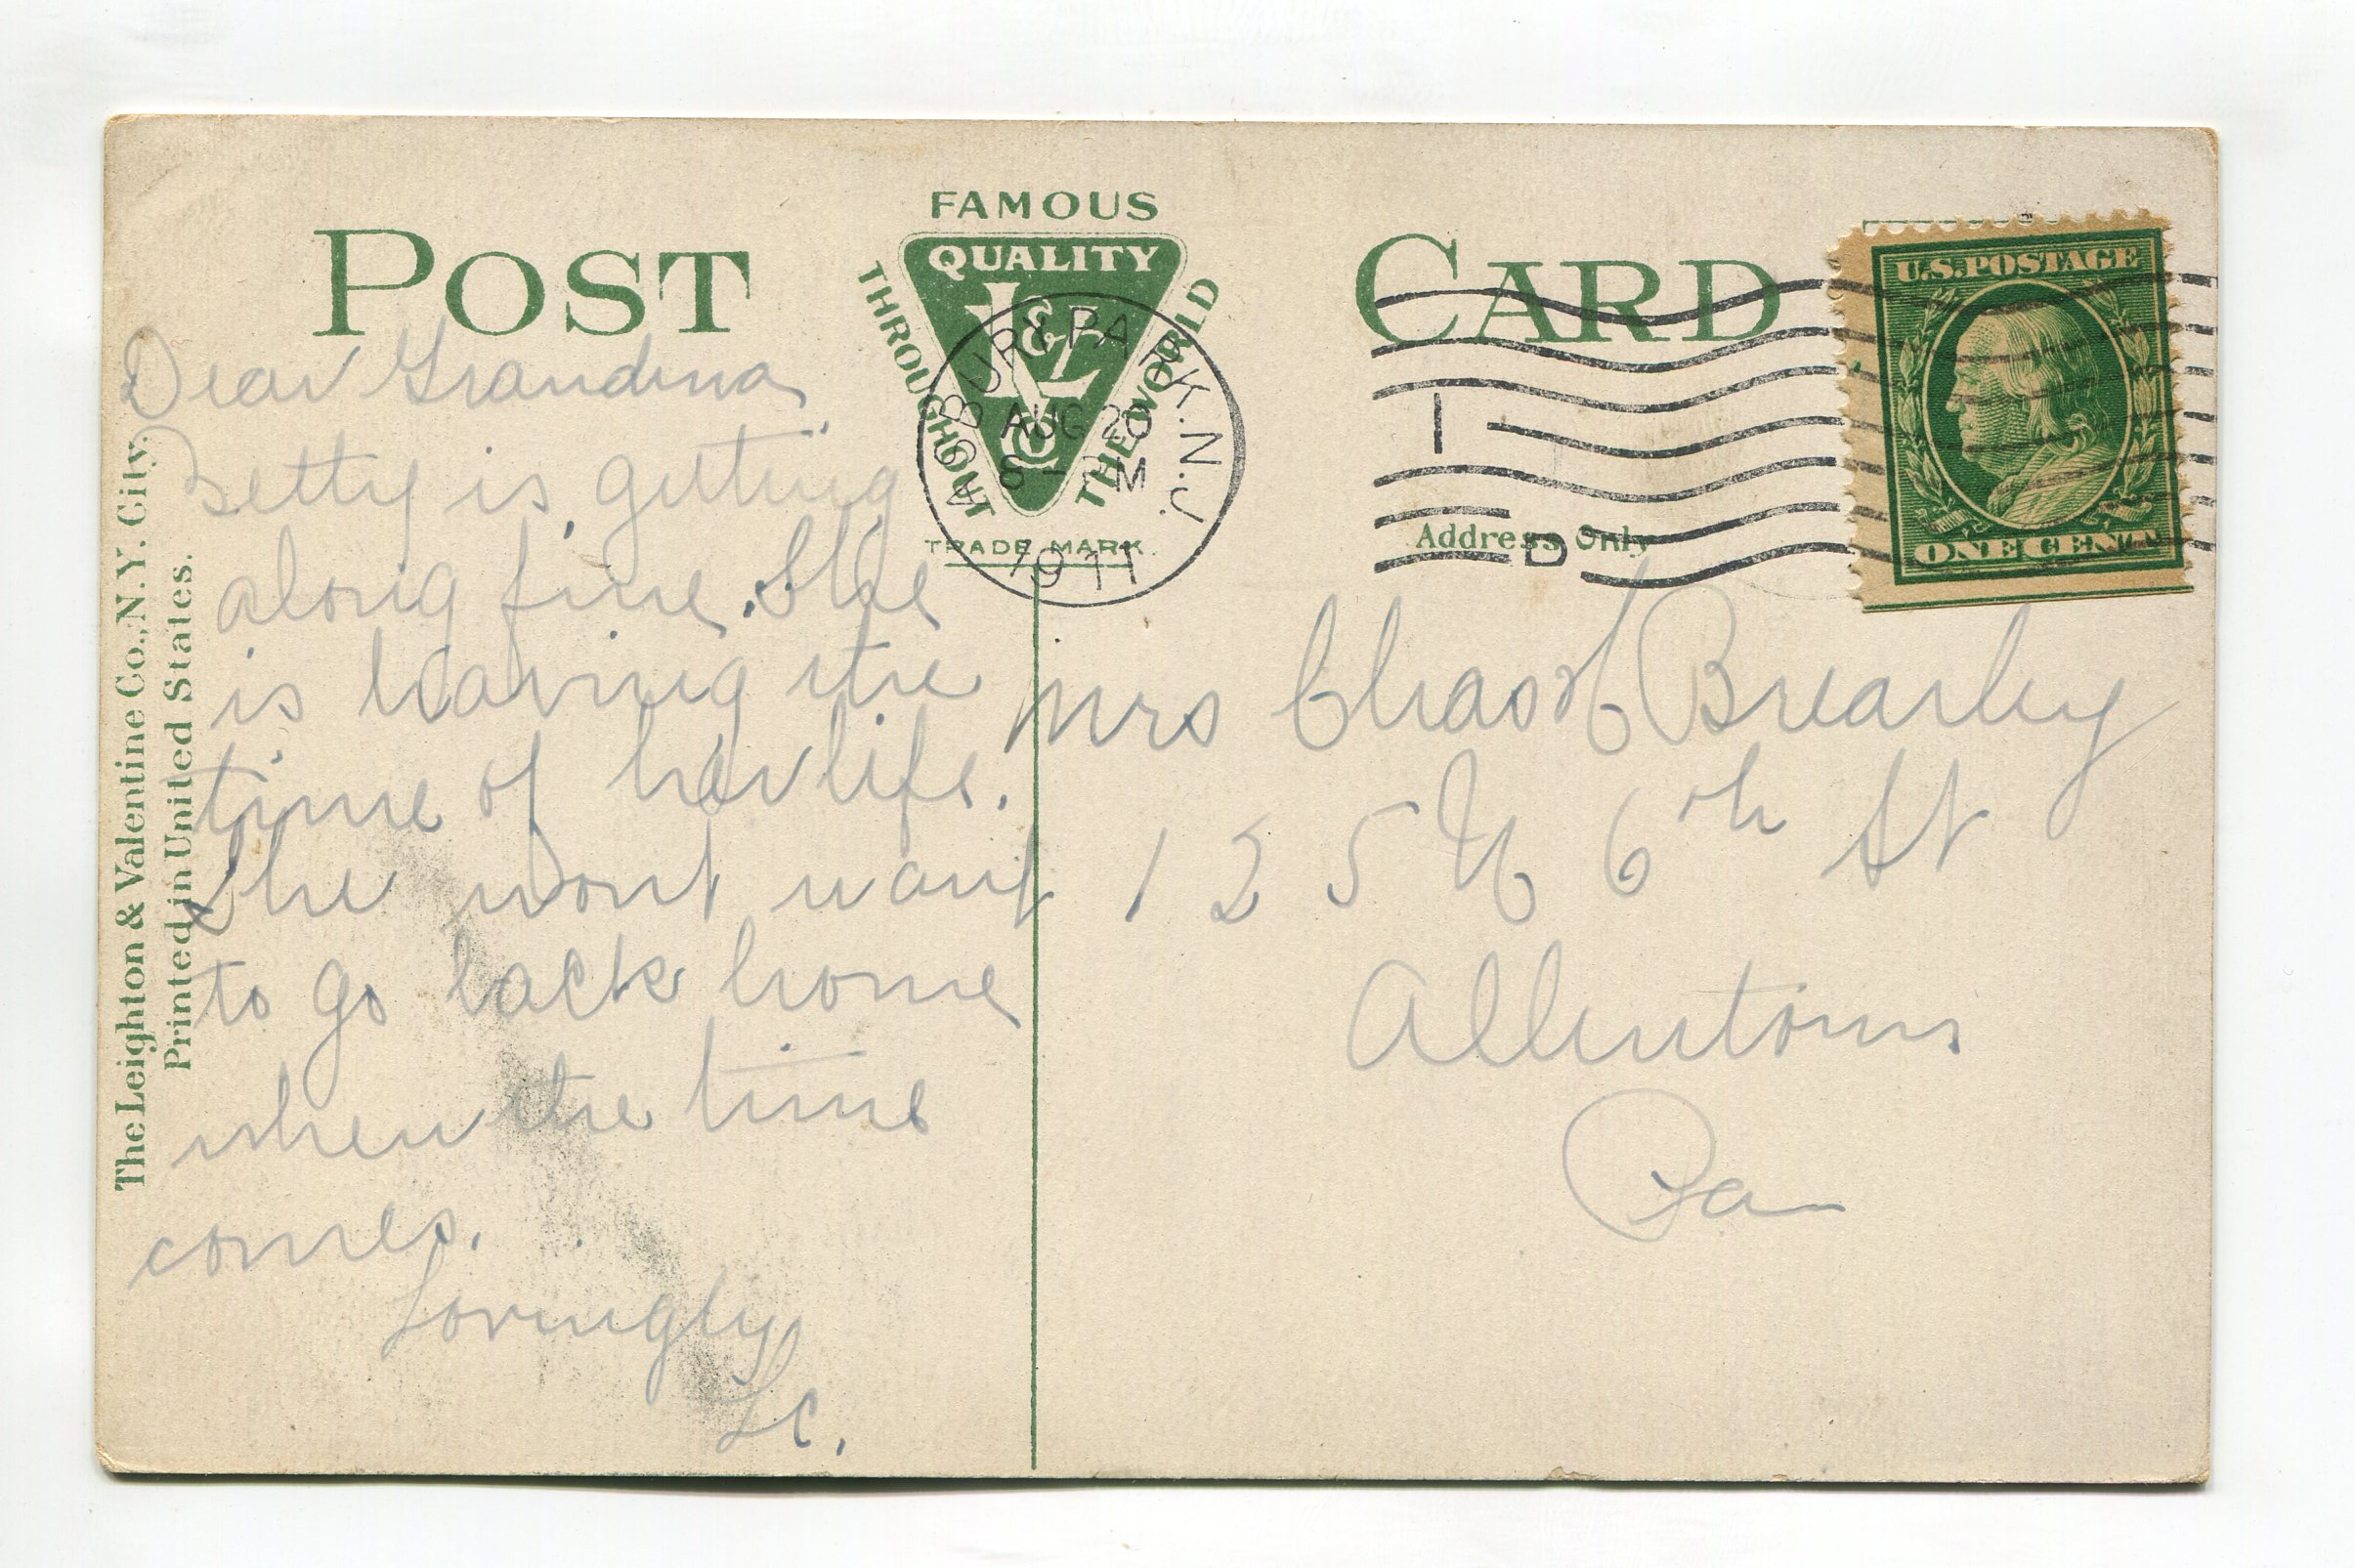 POST CARD
FAMOUS
QUALITY
L&V Co
THROUGHOUT THE WORLD
TRADE MARK.
ASBURY PARK. N.J.
AUG 20
1911
1
D
Address Only
U.S. POSTAGE
ONE CENT
The Leighton & Valentine Co., N.Y. City.
Printed in United States.
Dear Grandma
Betty is getting
along fine. She
is having the
time of her life.
She wont want
to go back home
when the time
comes.
Lovingly
Mrs Chas H Brearley
125 N 6th St
Allentown
Pa